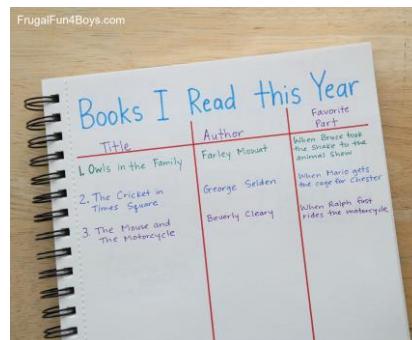 FrugalFun4Boys.com
Books I Read this Year
Title
Author
Favorite
Part
1. Owls in the Family
Farley Mowat
When Bruce took
the snake to the
animal show
2. The Cricket in
Times Square
George Selden
When Mario gets
the cage for Chester
3. The Mouse and
The Motorcycle
Beverly Cleary
When Ralph first
rides the motorcycle